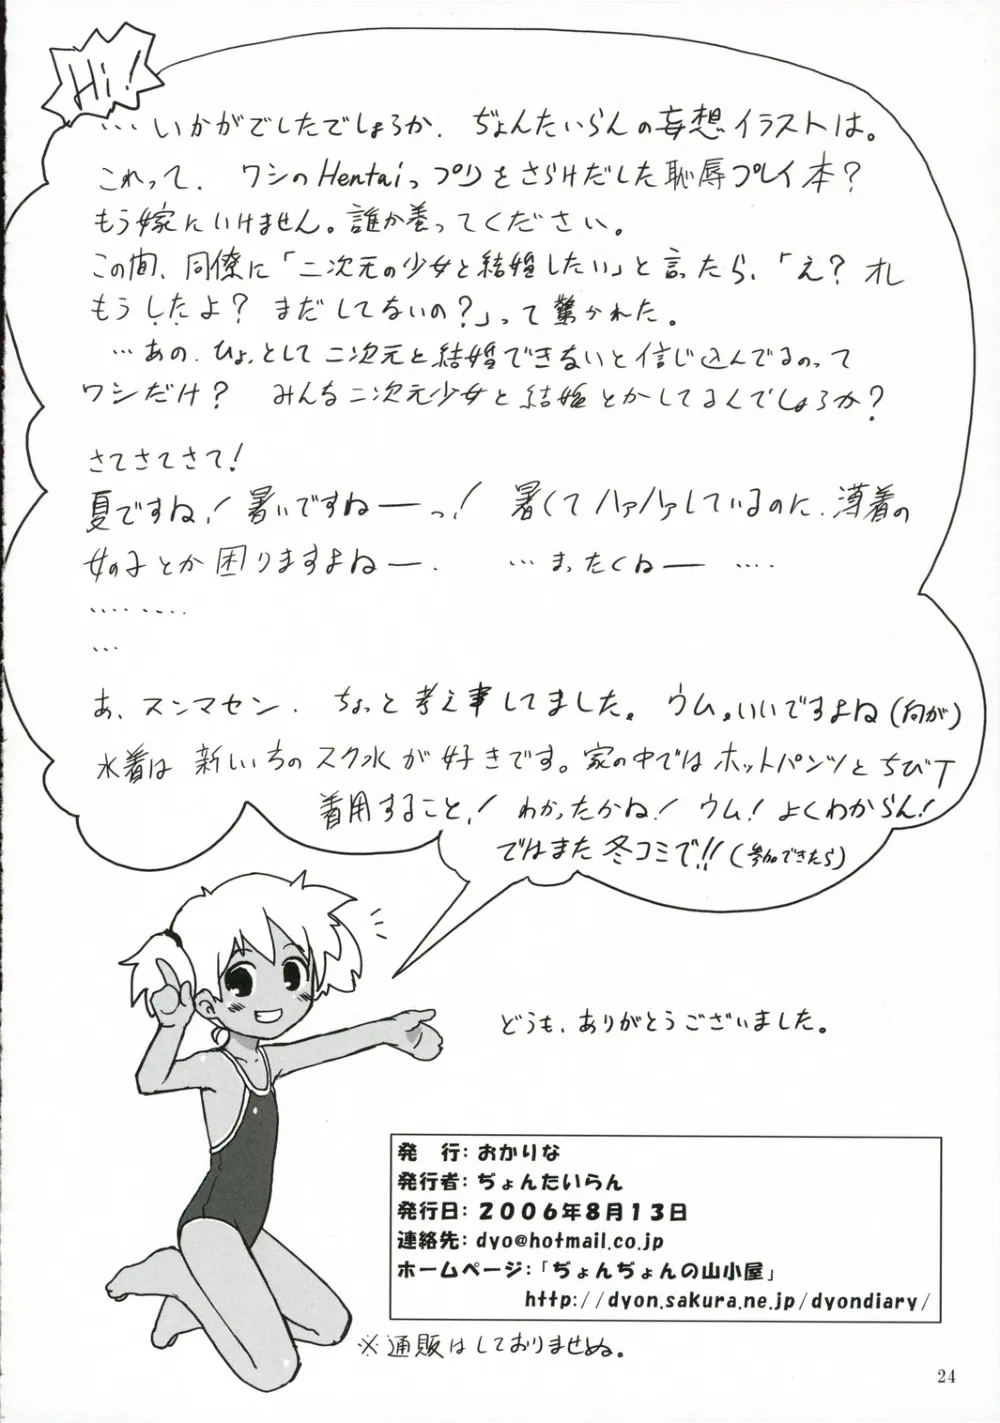 Hi!
…いかがでしたでしょうか、ぢょんたいらんの妄想イラストは。
これって、ワシのHentaiっプリをさらけだした恥辱プレイ本?
もう嫁にいけません。誰か養ってください。
この間、同僚に「二次元の少女と結婚したい」と言ったら、「え?オレ
もうしたよ? まだしてないの?」って驚かれた。
…あの、ひょっとして二次元と結婚できないと信じ込んでるのって
ワシだけ? みんな二次元少女と結婚とかしてるんでしょうか?
さてさてさて!
夏ですね!暑いですねーっ! 暑くてハァハァしているのに、薄着の
女の子とか困りますよねー、 …まったくねー ‥‥
………
…
あ、スンマセン、ちょっと考え事してました。ウム。いいですよね(何が)
水着は新しいちのスク水が好きです。家の中ではホットパンツとちびT
着用すること! わかったかね! ウム! よくわからん!
ではまた冬コミで!!(参加できたら)
どうも、ありがとうございました。
発 行:おかりな
発行者:ぢょんたいらん
発行日:2006年8月13日
連絡先:dyo@hotmail.co.jp
ホームページ:「ぢょんぢょんの山小屋」
http://dyon.sakura.ne.jp/dyondiary/
※通販はしておりませぬ。
24